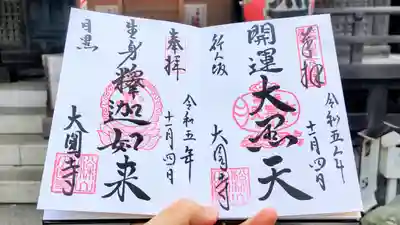 奉拝
開運大黒天
行人坂
令和五年
十二月四日
大圓寺
奉拝
生身釋迦如来
目黒
令和五年
十二月四日
大圓寺